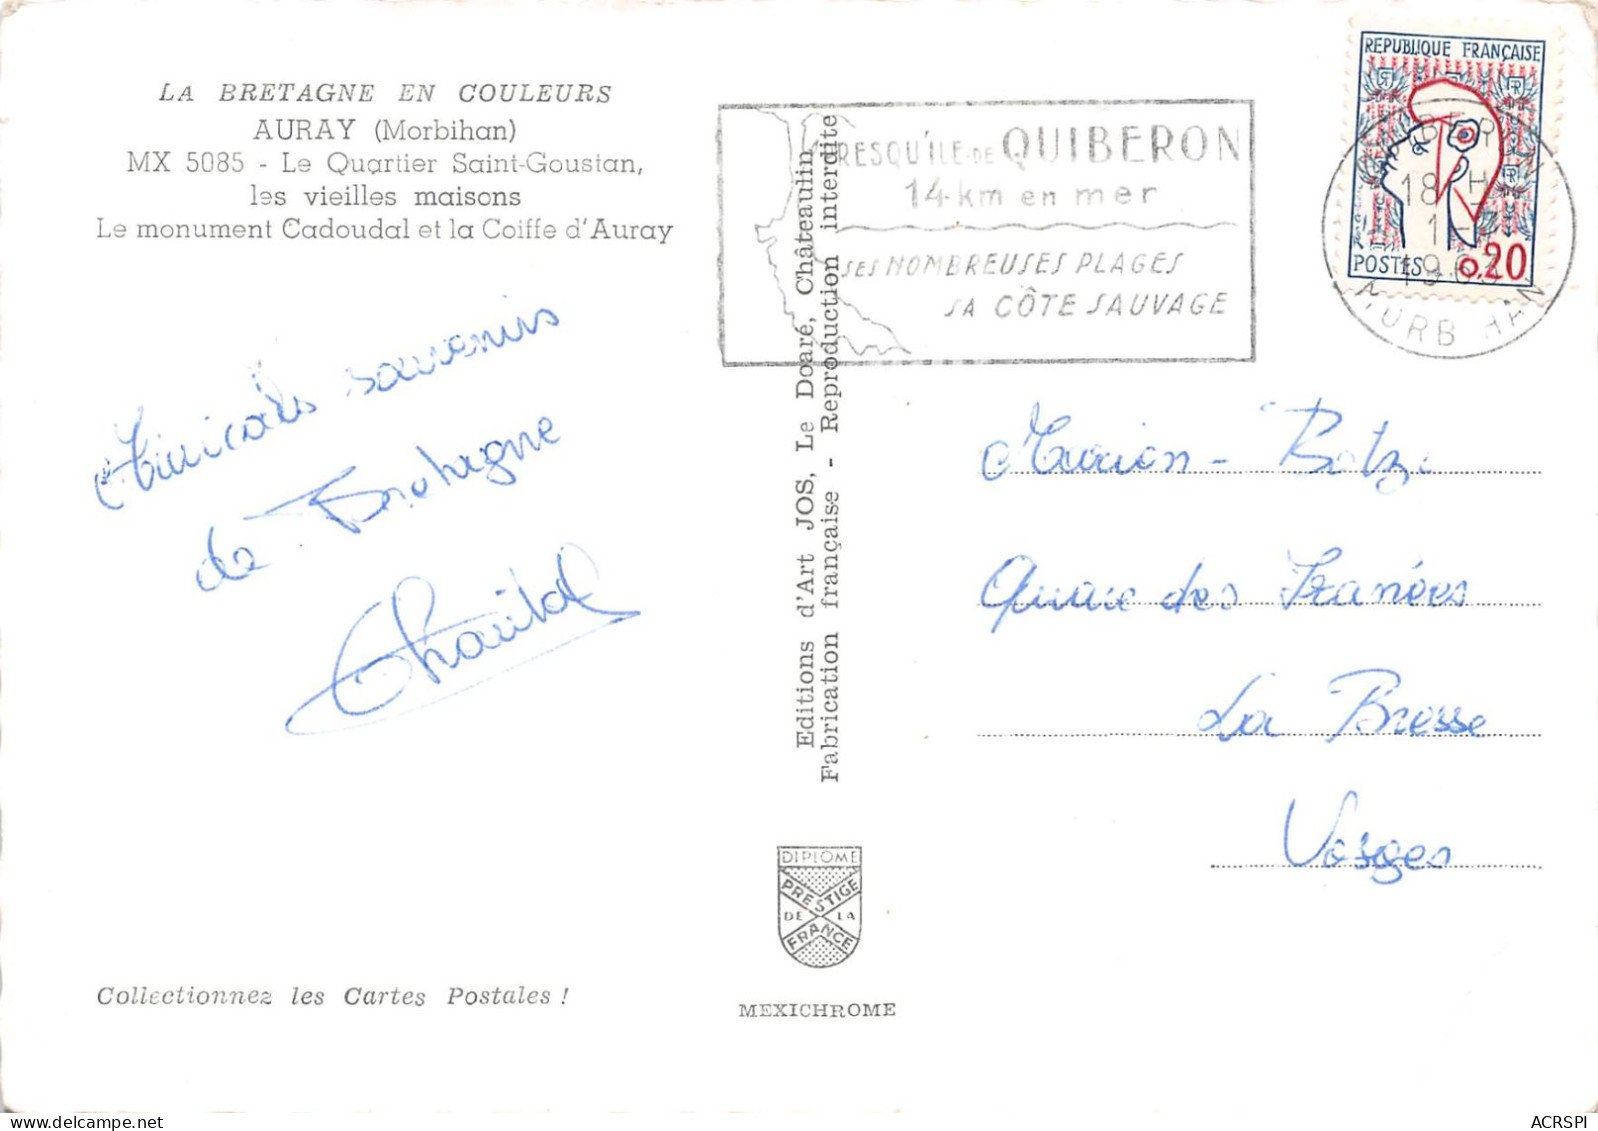 LA BRETAGNE EN COULEURS
AURAY (Morbihan)
MX 5085 - Le Quartier Saint-Goustan,
les vieilles maisons
Le monument Cadoudal et la Coiffe d'Auray
Amicals souvenirs
de Bretagne
Collectionnez les Cartes Postales !
Editions d'Art JOS, Le Doaré, Châteaulin
Fabrication française - Reproduction interdite
DIPLOME
PRESTIGE
DE LA
FRANCE
MEXICHROME
PRESQU'ÎLE DE QUIBERON
14 km en mer
SES NOMBREUSES PLAGES
SA CÔTE SAUVAGE
REPUBLIQUE FRANÇAISE
POSTES 0,20
18 H
MORBIHAN
La Bresse
Vosges
ACRSPI